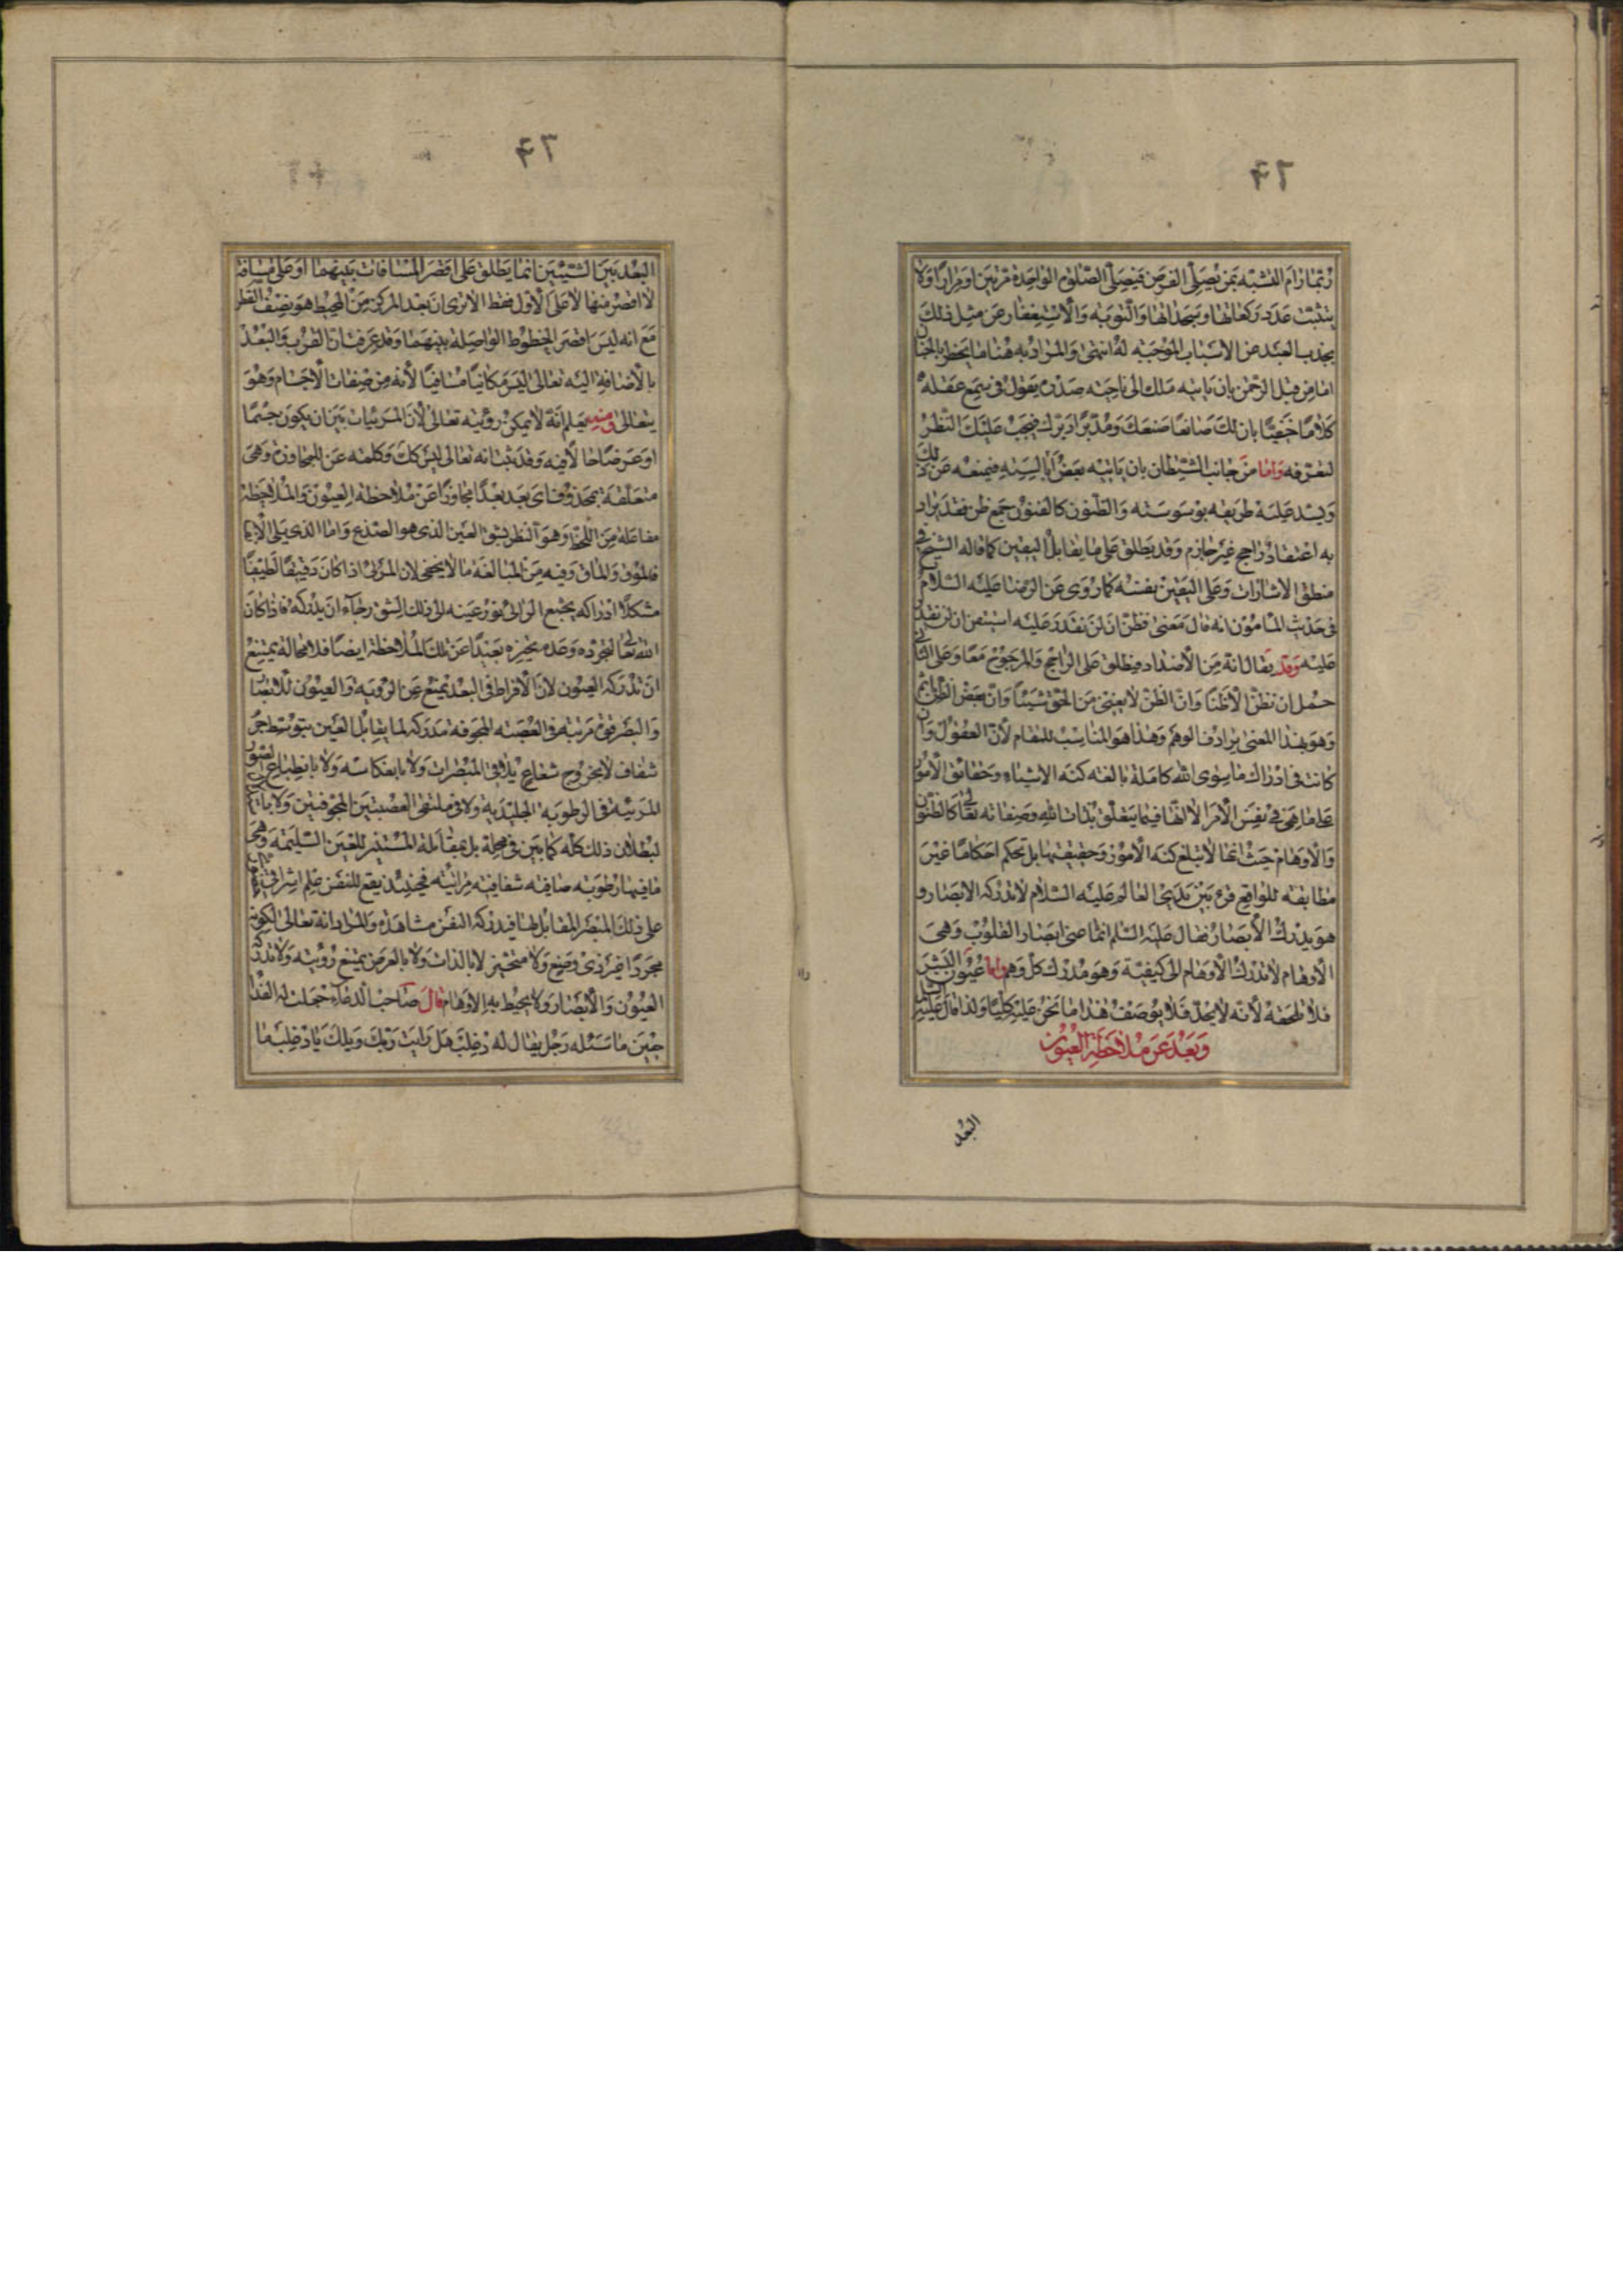 وربما رام التشبه بمن يصلي الفرض فيصلي الصلوة الواحدة مرتين او مرارا ولا
يتثبت عدد ركعاتها وسجداتها والتوبة والاستغفار عن مثل ذلك
يجذب العبد عن الاسباب الموجبة له انتهى والمراد به هنا ما يخطر بالجنان
اما من قبل الرحمن بان ياتيه ملك الى ناحية صدره يقول في سمع عقله
كلاما خفيا بان لك صانعا صنعك ومدبرا دبرك فيجب عليك النظر
لتعرفه واما من جانب الشيطان بان ياتيه بعض ابالسته فيمنعه عن ذلك
ويسد عليه طريقه بوسوسته والظنون كالفنون جمع ظن فقد يراد
به اعتقاد راجح غير جازم وقد يطلق على ما يقابل اليقين كما قاله الشيخ في
منطق الاشارات وعلى اليقين نفسه كما روى عن الرضا عليه السلام
في حديث المامون انه قال معنى فظن ان لن نقدر عليه استيقن ان لن نقدر
عليه وقد يقال انه من الاضداد فيطلق على الراجح والمرجوح معا وعلى الثاني
حمل ان نظن الا ظنا وان الظن لا يغني من الحق شيئا وان بعض الظن اثم
وهو بهذا المعنى يرادف الوهم وهذا هو المناسب للمقام لان العقول وان
كانت في ادراك ما سوى الله كاملة بالغة كنه الاشياء وحقائق الامور
على ما هي في نفس الامر الا انها فيما يتعلق بذات الله وصفاته تعالى كالظنون
والاوهام حيث انها لا تبلغ كنه الامور وحقيقتها بل تحكم احكاما غير
مطابقة للواقع قرء بين يدي العالم عليه السلام لا تدركه الابصار و
هو يدرك الابصار فقال عليه السلم انما عنى ابصار القلوب وهي
الاوهام لا تدرك الاوهام الى كيفيته وهو مدرك كل وهم واما عيون البشر
فلا تلحقه لانه لا يحد فلا يوصف هذا ما نحن عليه كلنا ولذا قال عليه السلام
وبعد عن ملاحظة العيون
البعد
البعد بين الشيئين انما يطلق على اقصر المسافات بينهما او على مسافة
لا اقصر منها لا على الاول فقط الا ترى ان بعد المركز من المحيط هو نصف القطر
مع انه ليس اقصر الخطوط الواصلة بينهما وقد عرفت ان القرب والبعد
بالاضافة اليه تعالى ليس مكانيا مسافيا لانه من صفات الاجسام وهو
يتعالى ومنه يعلم انه لا يمكن رؤيته تعالى لان المرئيات بين ان يكون جسما
او عرضا حالا فيه وقد ثبت انه تعالى ليس كك وكلمة عن للمجاوزة وهي
متعلقة بمحذوف اي بعد بعدا مجاوزا عن ملاحظة العيون والملاحظة
مفاعلة من اللحظ وهو النظر بشق العين الذي هو الصدغ واما الذي يلى الانف
فالموق والماق وفيه من المبالغة ما لا يخفى لان المرئى اذا كان دقيقا لطيفا
مشكلا ادراكه يجتمع الرائى نور عينه الى ذلك الشق رجاء ان يدركه فاذا كان
الله تعالى لتجرده وعدم تحيزه بعيدا عن تلك الملاحظة ايضا فلا محالة يمتنع
ان تدركه العيون لان الافراط في البعد يمتنع عن الروية والعيون للابصار
والبصر قوة مرتبة في العصبة المجوفة مدركة لما يقابل العين بتوسط جرم
شفاف لا بخروج شعاع يلاقي المبصرات ولا بانعكاسه ولا بانطباع الصورة
المرئية في الرطوبة الجليدية ولا في ملتقى العصبتين المجوفتين ولا
لبطلان ذلك كله كما بين في محله بل بمقابلة المستنير للعين السليمة وهي
ما فيها رطوبة صافية شفافية مرائية فحينئذ يقع للنفس علم اشراقي
على ذلك المبصر المقابل لها فيدركه النفس مشاهدة والمراد انه تعالى لكونه
مجردا غير ذي وضع ولا متحيز لا بالذات ولا بالعرض يمتنع رؤيته ولا تدركه
العيون والابصار ولا يحيط به الاوهام قال صاحب الدعاء جعلت له الفداء
حين ما سئله رجل يقال له ذعلب هل رايت ربك ويلك يا ذعلب ما